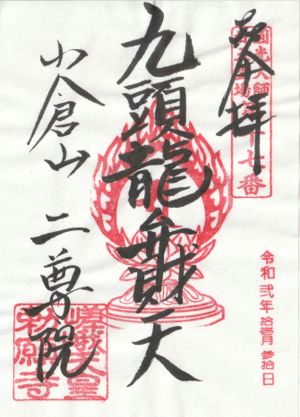 奉拝
圓光大師
十七番
九頭龍弁財天
小倉山 二尊院
令和弐年 拾壹月 参拾日